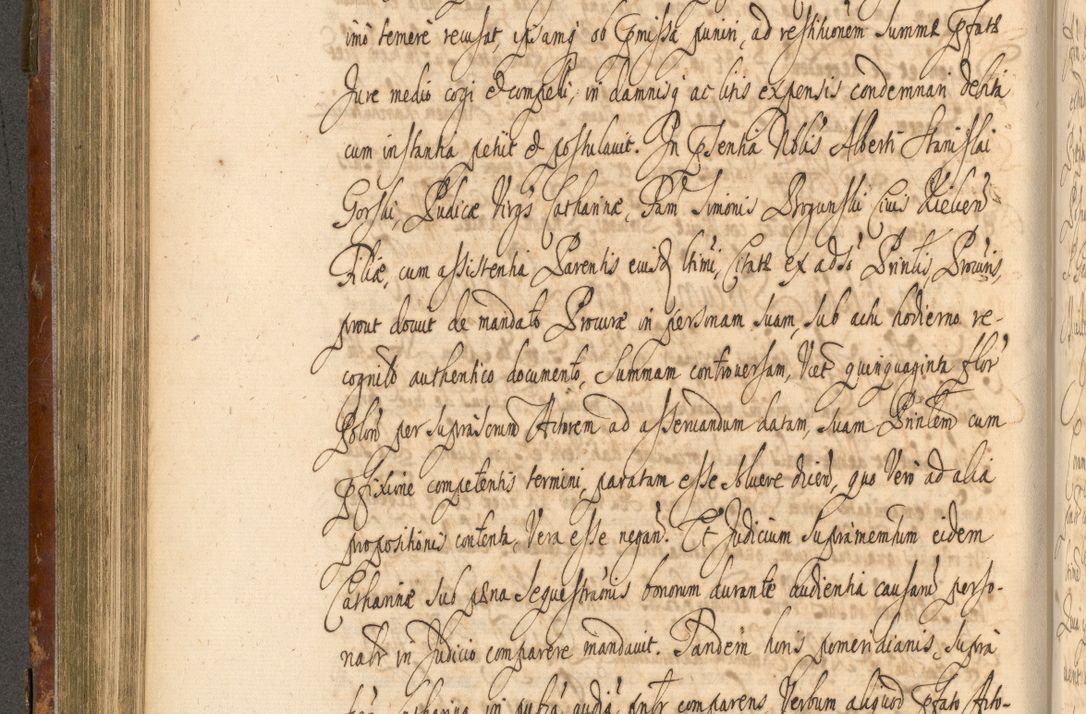 imo temere recusat, ipsamq ob Pmissa puniri, ad restitutionem summæ Pfatæ
Jure medio cogi et compelli, in damnisq ac litis expensis condemnari debita
cum instantia petiit et postulavit. In Psentia Nblis Alberti Stanislai
Gorski, Pudicæ Virgs Catharinæ, Fam Simonis Progunski Civis Kielcen
Filiæ, cum assistentia Parentis eiusd ltimi, Citatæ ex adso Prinlis Procuris,
prout docuit de mandato Procuræ in personam suam, sub actu hodierno re-
cognito authentico documento, Summam controversam, Vcet quinquaginta flor
Polon per suprascrum Actorem ad asservandum datam, suam Prinlem cum
Pfixione competentis termini, paratam esse solvere dicen, quo vero ad alia
propositionis contenta, Vera esse negan. Et Judicium supramemtum eidem
Catharinæ sub pæna sequestraonis bonorum durante audientia causaru perso-
nalr in Judicio comparere mandavit. Tandem horis pomeridianis, supra
Catharina in publca audia, pntr comparens Verbum aliquod Pfato Acto-